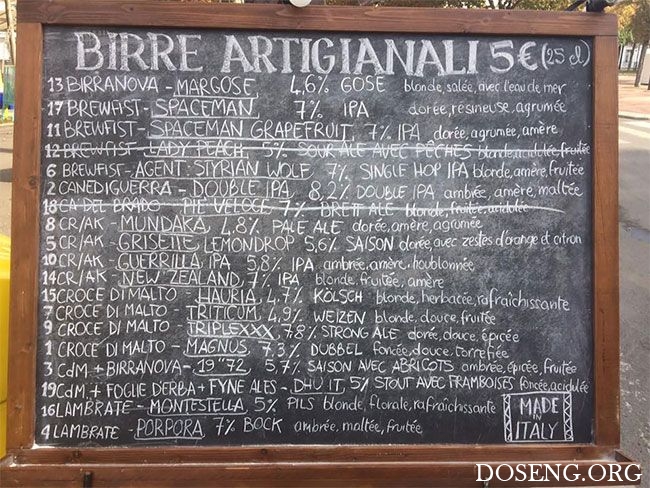 BIRRE ARTIGIANALI 5€ (25 cl)
13 BIRRANOVA - MARGOSE 4,6% GOSE blonde, salée, avec l'eau de mer
17 BREWFIST - SPACEMAN 7% IPA dorée, résineuse, agrumée
11 BREWFIST - SPACEMAN GRAPEFRUIT, 7% IPA dorée, agrumée, amère
12 BREWFIST - LADY PEACH, 5% SOUR ALE AVEC PÊCHES blonde, acidulée, fruitée
6 BREWFIST - AGENT: STYRIAN WOLF 7% SINGLE HOP IPA blonde, amère, fruitée
2 CANEDIGUERRA - DOUBLE IPA, 8,2% DOUBLE IPA ambrée, amère, maltée
18 CA' DEL BRADO - PIE VELOCE 7% BRETT ALE blonde, fruitée, acidulée
8 CR/AK - MUNDAKA, 4,8% PALE ALE dorée, amère, agrumée
5 CR/AK - GRISETTE LEMONDROP 5,6% SAISON dorée, avec zestes d'orange et citron
10 CR/AK - GUERRILLA, IPA 5,8% IPA ambrée, amère, houblonnée
14 CR/AK - NEW ZEALAND, 7% IPA blonde, fruitée, amère
15 CROCE DI MALTO - HAURIA, 4,7% KÖLSCH blonde, herbacée, rafraîchissante
7 CROCE DI MALTO - TRITICUM, 4,9% WEIZEN blonde, douce, fruitée
9 CROCE DI MALTO - TRIPLEXXX, 7,8% STRONG ALE dorée, douce, épicée
1 CROCE DI MALTO - MAGNUS, 7,3% DUBBEL foncée, douce, torrefiée
3 CdM + BIRRANOVA - 19"72, 5,7% SAISON AVEC ABRICOTS ambrée, épicée, fruitée
19 CdM + FOGLIE D'ERBA + FYNE ALES - DHU IT, 5% STOUT AVEC FRAMBOISES foncée, acidulée
16 LAMBRATE - MONTESTELLA, 5% PILS blonde, florale, rafraîchissante
4 LAMBRATE - PORPORA 7% BOCK ambrée, maltée, fruitée
MADE
IN
ITALY
DOSENG.ORG